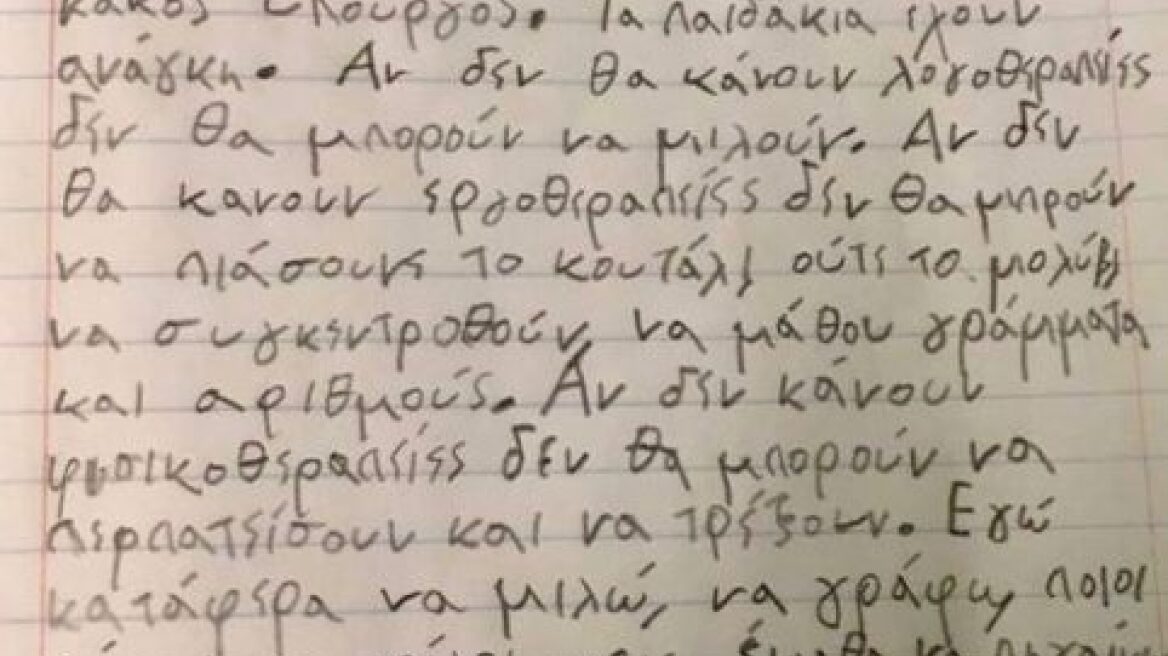 κακός Υπουργός. Τα παιδάκια έχουν
ανάγκη. Αν δεν θα κάνουν λόγοθεραπείες
δεν θα μπορούν να μιλούν. Αν δεν
θα κανουν εργοθεραπείες δεν θα μπρούν
να πιάσουν το κουτάλι ούτε το μολύβι
να συγκεντροθούν, να μάθου γράμματα
και αριθμούς. Αν δεν κάνουν
φυσικοθεραπείες δεν θα μπορούν να
περπατείσουν και να τρέξουν. Εγώ
κατάφερα να μιλώ, να γράφω, ποιοι